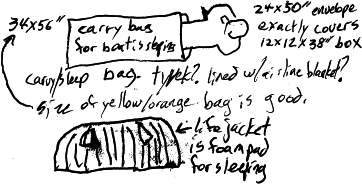 34x56"
carry bag
for bartisslepig
24x50" envelope
exactly covers
12x12x38" box
carry/sleep bag- tyvek? lined w/airline blanket?
size of yellow/orange bag is good.
←life jacket
is foam pad
for sleeping